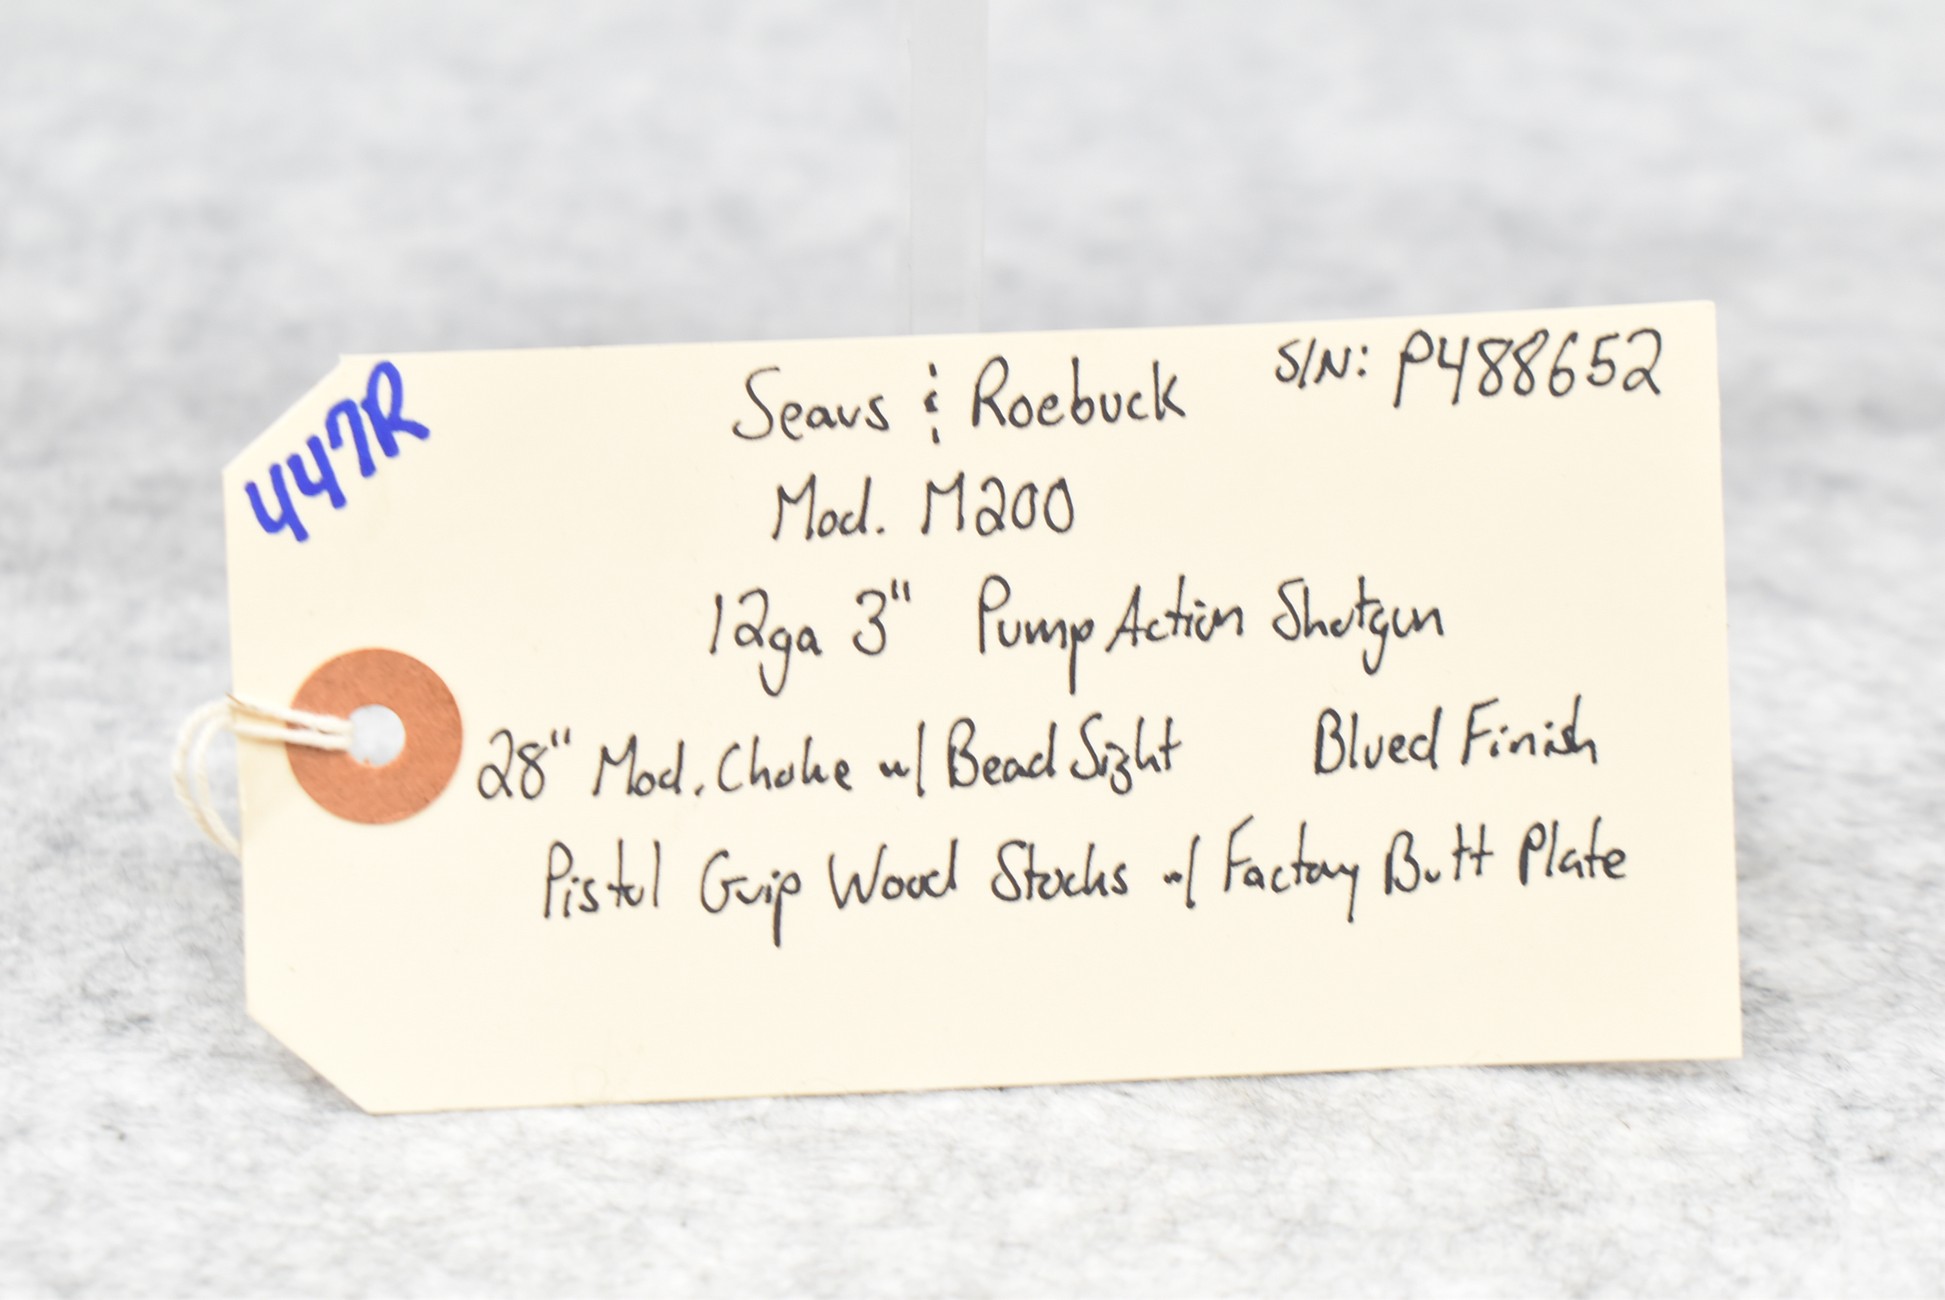 447R
Sears & Roebuck S/N: P488652
Mod. M200
12ga 3" Pump Action Shotgun
28" Mod. Choke w/ Bead Sight Blued Finish
Pistol Grip Wood Stocks w/ Factory Butt Plate